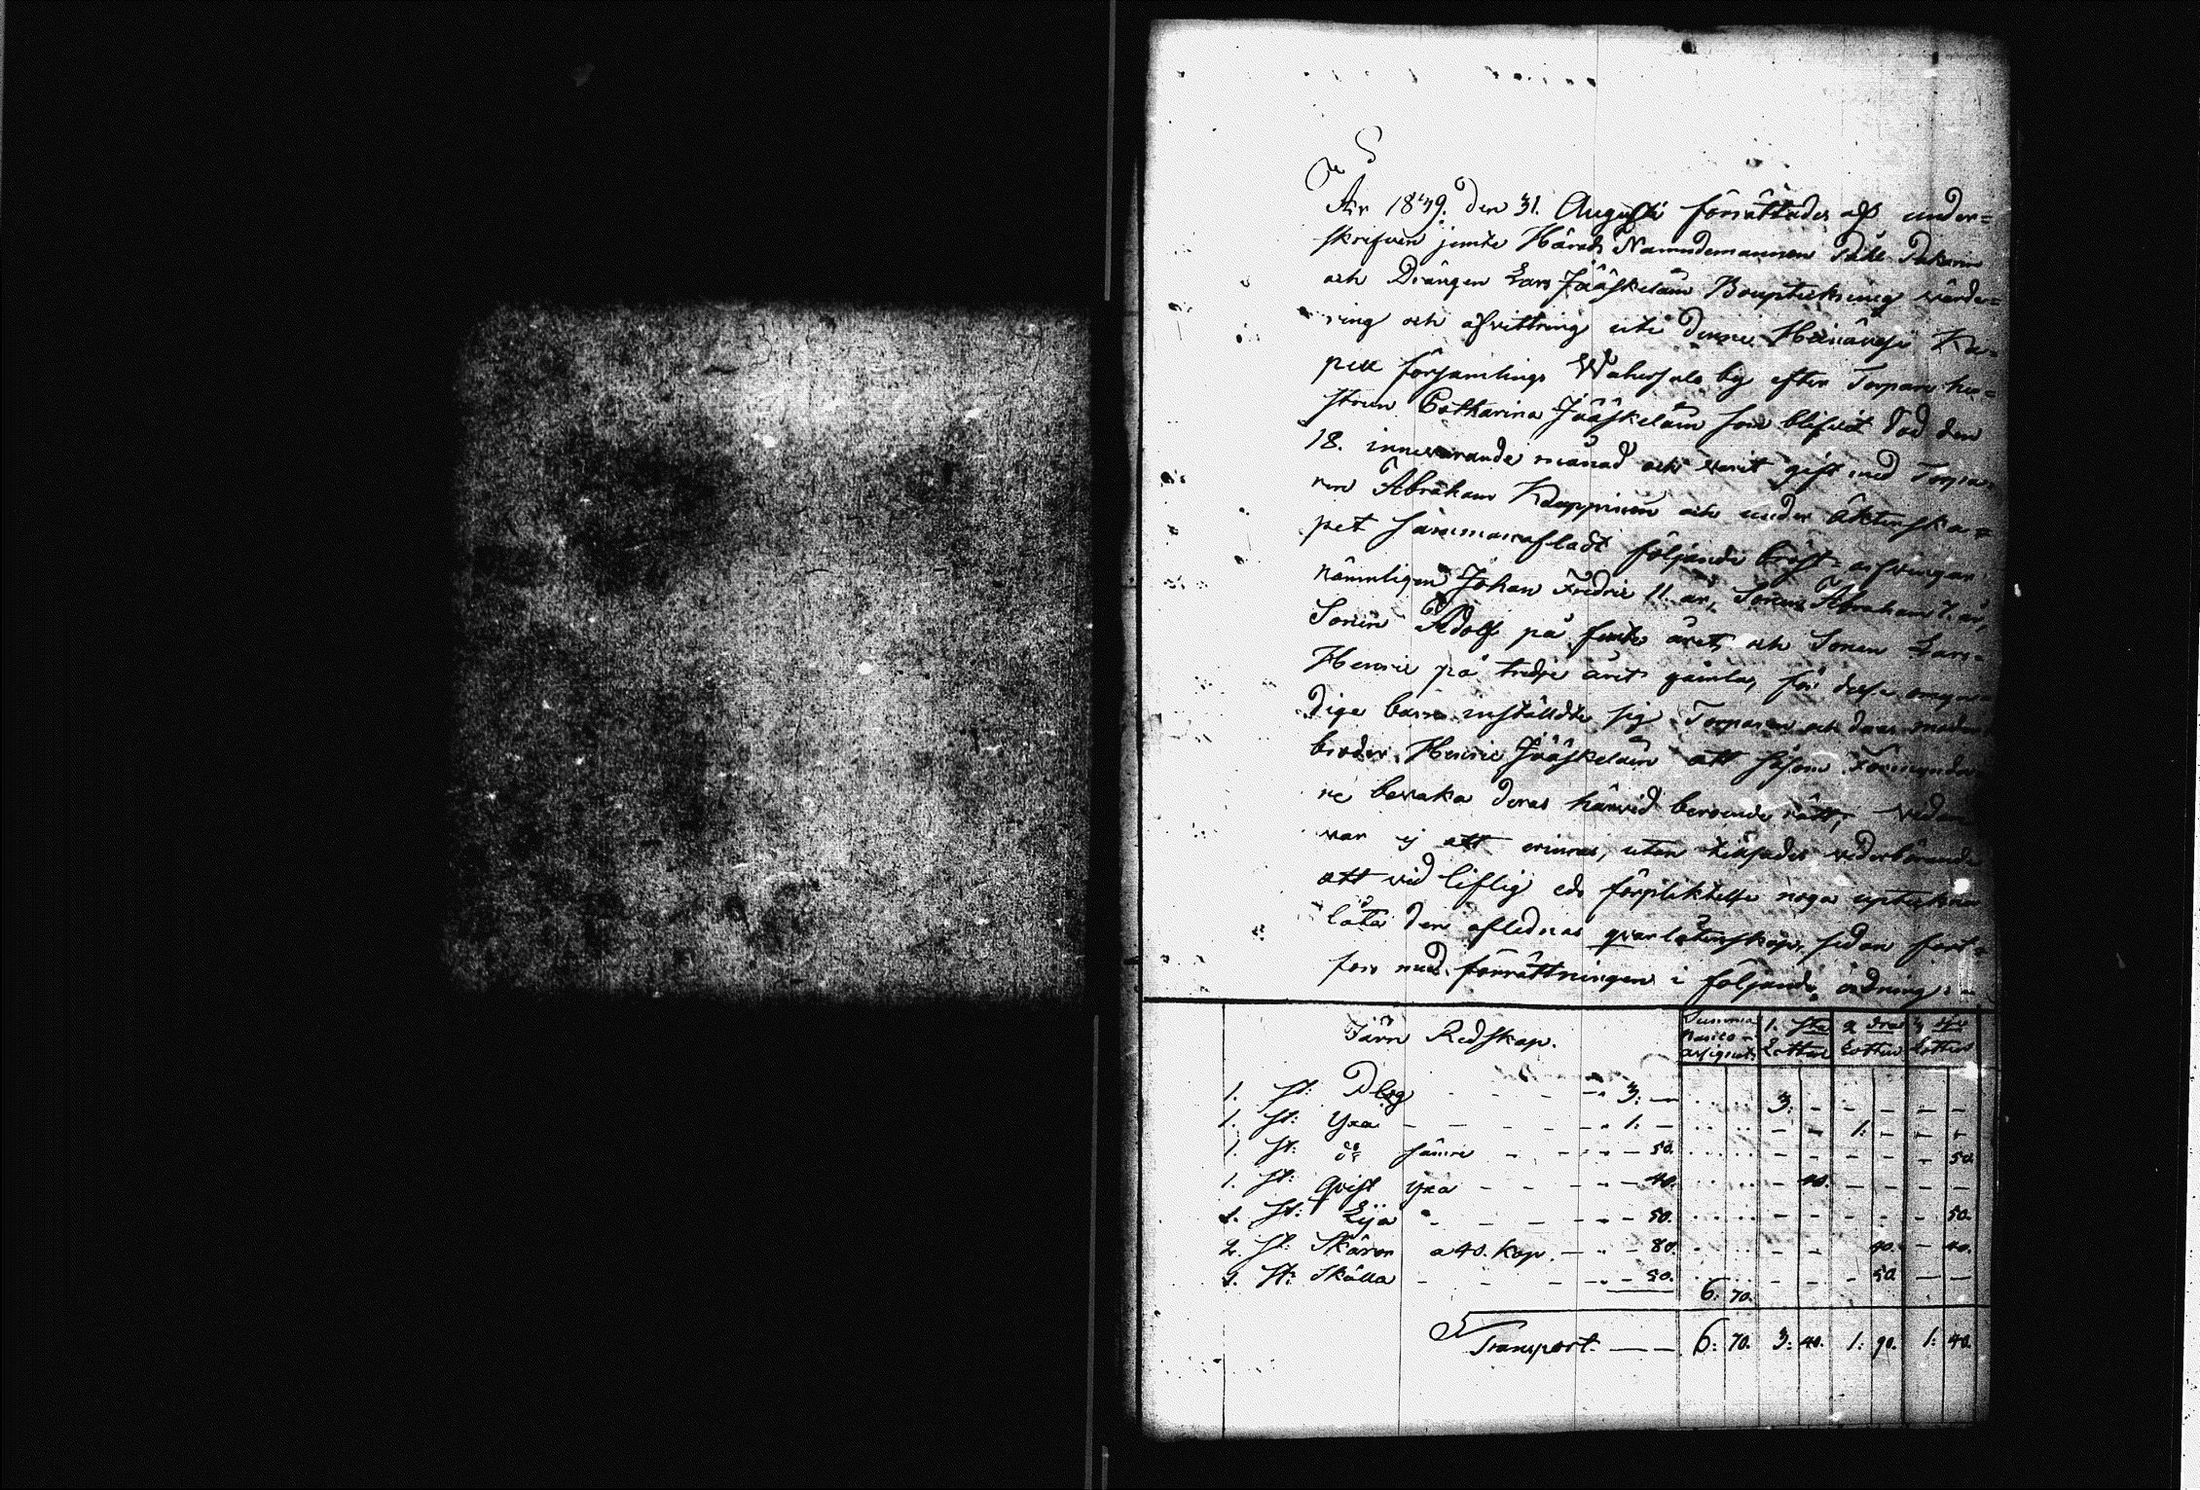 År 1839. den 31. Augusti förrättades af under=
skrifven jemte Härads Nämndemannen Påhl Pakarin
och Drängen Lars Jääskeläin Bouptekning värde=
ring och afvittring uti denne Heinävesi Ka=
pell församlings Wahersalo by efter Torpare hu=
strun Catharina Jääskeläin som blifvit död den
18. innevarande månad och varit gift med Torpa
ren Abraham Kauppinen och under äktenska=
pet sammanafladt följande bröst arfvingar
nämnligen Johan Fredric 11 år, Sonen Abraham 7. år,
Sonen Adolf på femte året, och Sonen Lars=
Henric på tredje året gamla, för desse omyn
dige barn inställdte sig Torparen och deras moder
broder Henric Jääskeläin att såsom Förmynda
re bevaka deras härvid beroende rätt, vidare
var ej att erinras, utan tilsades vederbörande
att vid liflig eds förpliktelse noga uptekna
låta den aflednas qvarlåtenskap, sedan fort=
fors med förrättningen i följande ordning: -
Järn Redskap.
Summa 1. sta 2 dra 3 dje
Banco= Lotten Lotten Lotten
assignat:
1. st: Plog - - - - 3: — 3: - - - - -
1. st: Yxa - - - - 1: — - - 1: - - -
1. st: do sämre - - - 50. - - - - - 50
1. st: qvist yxa - - - 40. - 40. - - - -
1. st: Lija - - - - 50. - - - - - 50.
2. st: Skäror a 40. kop. — - 80. - - 40. - 40.
1. st: Skälla - - - - 50. - - - 50 — —
6: 70.
Transport. — — 6: 70. 3: 40. 1: 90. 1: 40.